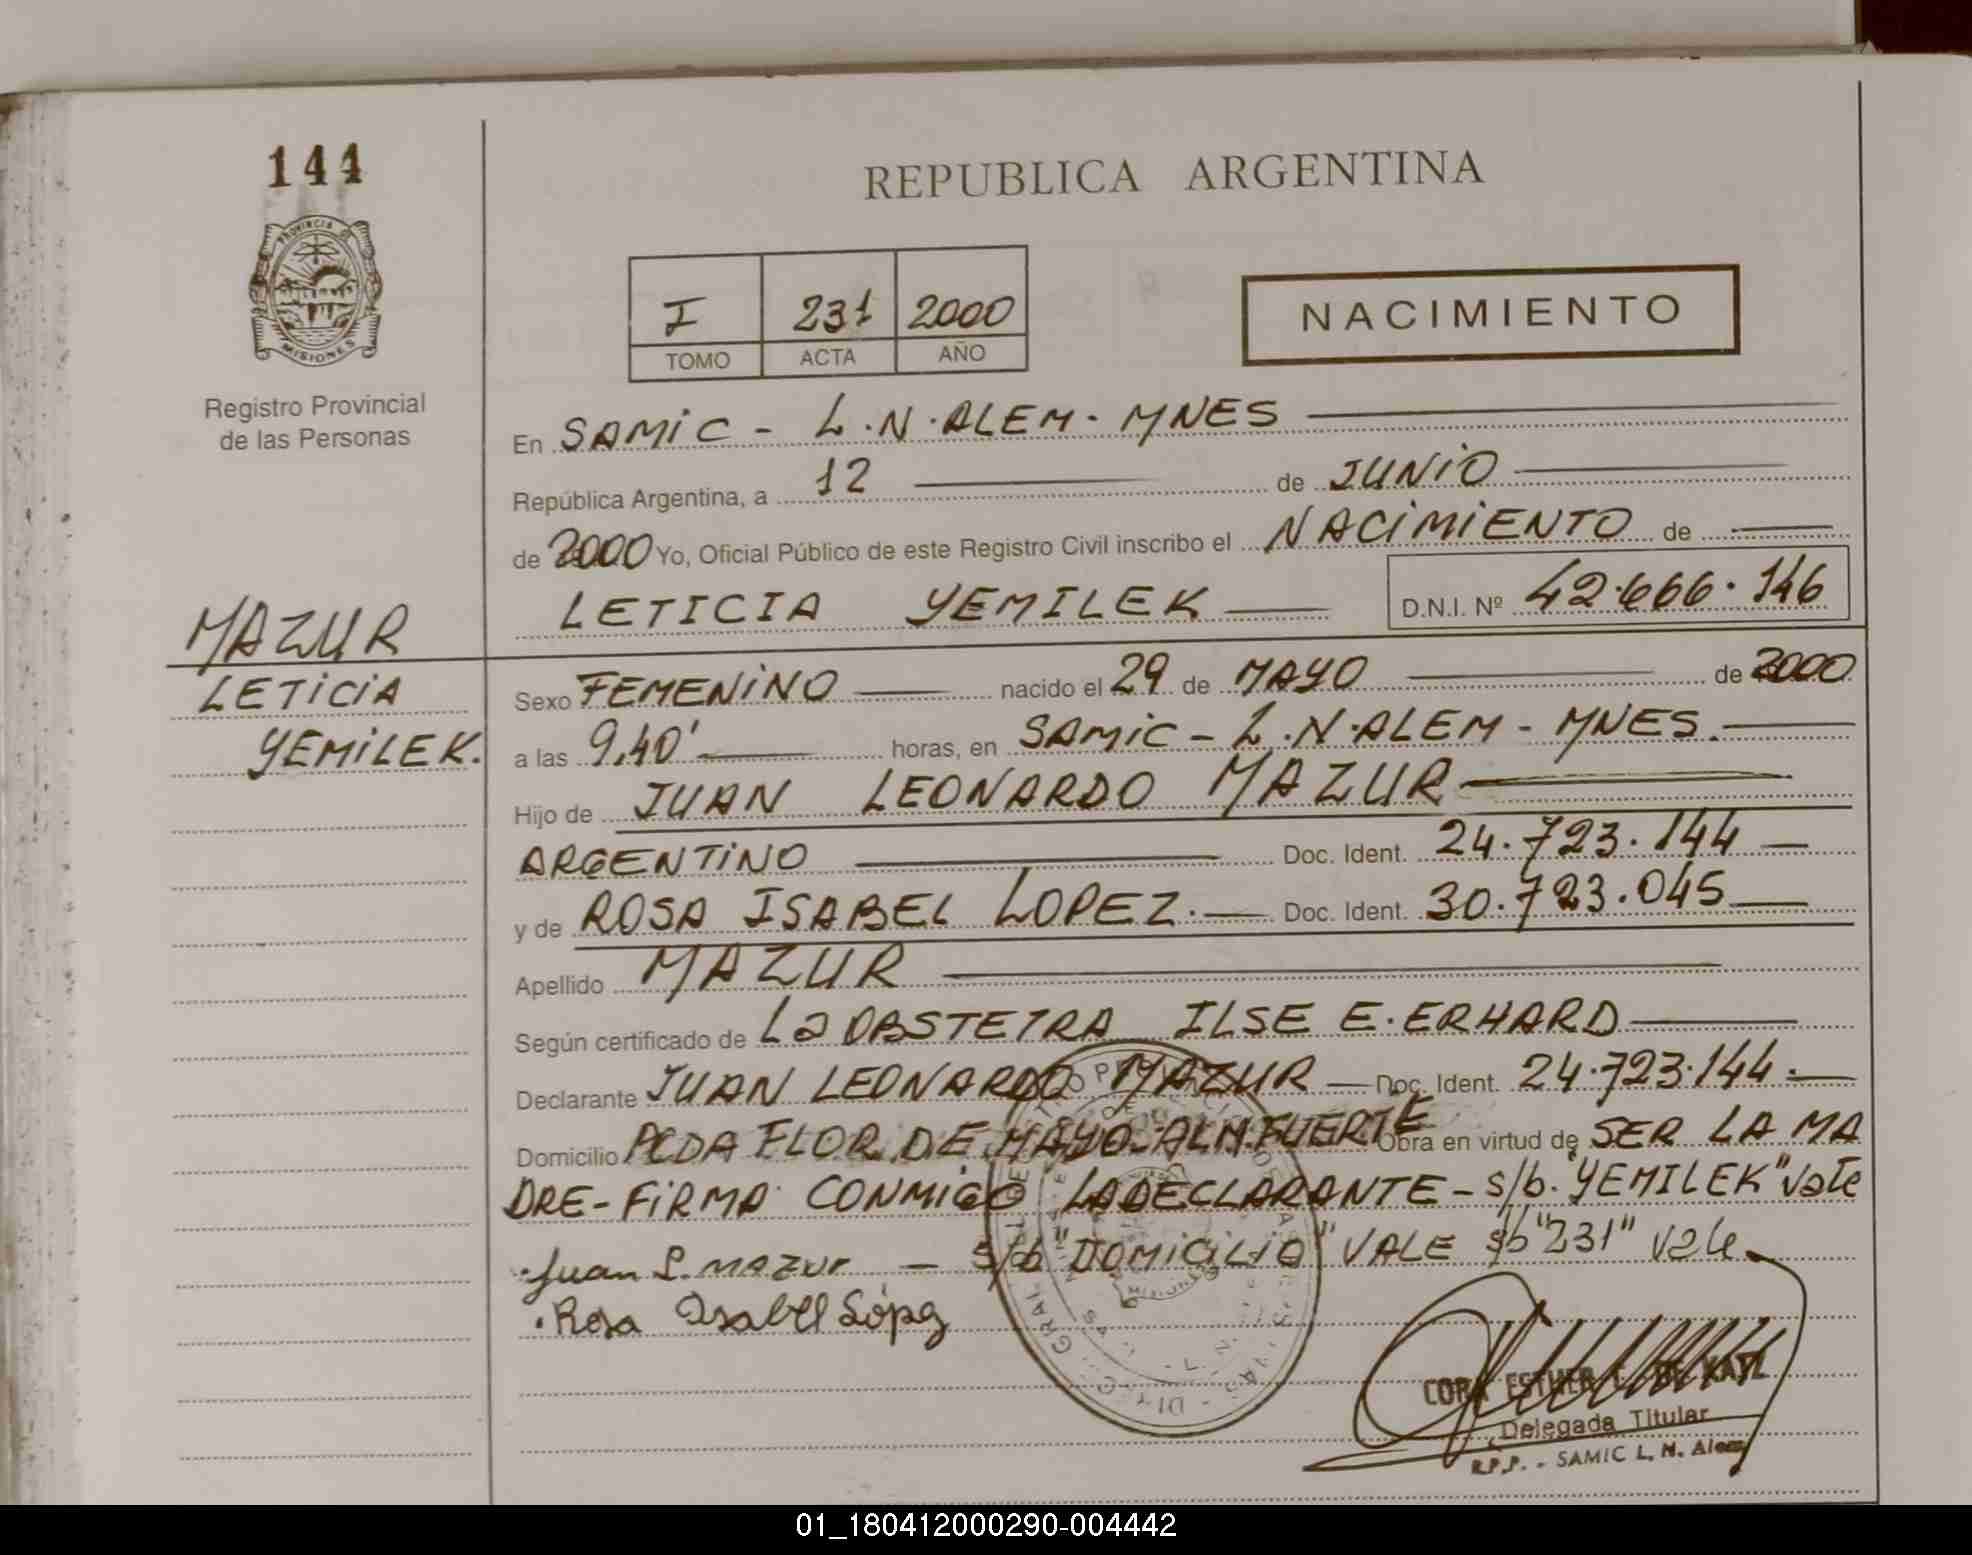 144
REPUBLICA ARGENTINA
PROVINCIA DE
MISIONES
Registro Provincial
de las Personas
I 231 2000
TOMO ACTA AÑO
NACIMIENTO
En SAMIC - L.N. ALEM - MNES
República Argentina, a 12 de JUNIO
de 2000 Yo, Oficial Público de este Registro Civil inscribo el NACIMIENTO de
LETICIA YEMILEK D.N.I. Nº 42.666.146
MAZUR
LETICIA
YEMILEK.
Sexo FEMENINO nacido el 29 de MAYO de 2000
a las 9,40' horas, en SAMIC - L.N. ALEM - MNES.
Hijo de JUAN LEONARDO MAZUR
ARGENTINO Doc. Ident. 24.723.144
y de ROSA ISABEL LOPEZ. Doc. Ident. 30.723.045
Apellido MAZUR
Según certificado de La OBSTETRA ILSE E. ERHARD
Declarante JUAN LEONARDO MAZUR Doc. Ident. 24.723.144.
Domicilio PCDA FLOR DE MAYO-ALM.FUERTE Obra en virtud de SER LA MA
DRE-FIRMA CONMIGO LA DECLARANTE - s/b. "YEMILEK" Vale
Juan L. Mazur — s/b "DOMICILIO" VALE s/b "231" Vale
Rosa Isabel López
CORA ESTHER DE KATZ
Delegada Titular
R.P.P. - SAMIC L. N. Alem
01_180412000290-004442